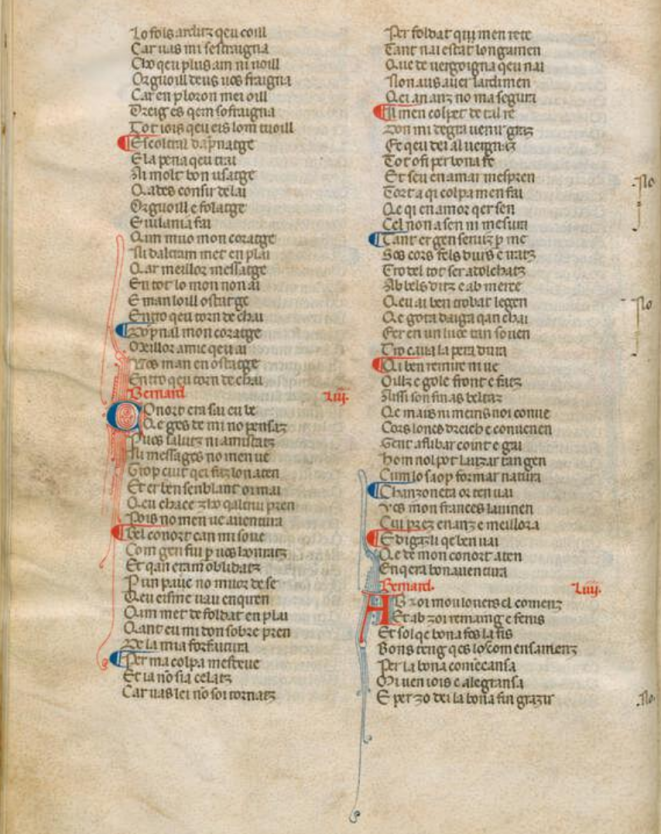 Lo fols arditz qeu coill
Car uas mi sestraigna
Cho qeu plus am ni uoill
Orguoill deus uos fraigna
Car en ploron mei oill
Dreig es qem sofraigna
Tot iois qeu eis lom tuoill
Estcoltral dapnatge
E la pena qeu trai
Ai molt bon usatge
Qades consir delai
Orguoill e folatge
E uilania fai
Qim muo mon coratge
Ni dalciam met en plai
Qar meillor messatge
En tot lo mon non ai
E man loill ostatge
Entro qeu torn de chai
Dopnal mon coratge
Meillor amic qeu ai
Vos man en ostatge
Entro qeu torn de chai
Bernard. Liii.
Conort era sai eu be
Qe ges de mi no pensatz
Pues salutz ni amistatz
Ni messages no men ue
Trop cuit qei fatz lon aten
Et er ben senblant oi mai
Qeu chace zho qaltrui pren
Pois no men ue auentura
Bel conort can mi soue
Com gen fui per uos honratz
Et qan eram oblidatz
Per un pauc no muor de se
Qeu eisme uau enquren
Qim met de foldat en plai
Qant eu mi don sobre pren
De la mia forfaitura
Per ma colpa mesteue
Et ia no sia celatz
Car uas lei no soi tornatz
Per foldat qui men rete
Tant nai estat longamen
Que de uergoigna qeu nai
Non aus auer lardimen
Qei an anz no ma segura
Il men colpet de tal re
Don mi degra uenir gratz
Fe qeu dei al uergnaz
Tot o fi per bona fe
Et seu en amar mespren
Tort a qi colpa men fai
Qe qi en amor qer sen
Cel non a sen ni mesura
Tant er gen seruiz per me
Sos cors fels durs e iratz
Tro del tot ser adolchatz
Ab bels ditz e ab merce
Qeu ai ben trobat legen
Qe gota daiga qan chai
Fer en un luec tan souen
Tro caua la pera dura
Qi ben remire ni ue
Oillz e gole front e fatz
Aissi son finas beltaz
Qe mais ni meins noi conue
Cors loncs dreich e conuenen
Gent afibar cointe e gai
Hom nol pot lauzar tan gen
Cum lo saop formar natura
Chanzoneta or ten uai
Ves mon frances lauinen
Cui prez enanz e meillora
E digaz li qe ben uai
Qe de mon conort aten
Enqera bona uentura
Bernard. Liiii.
Ab zoi mou lo uers el comenz
Et ab zoi remaing e fenis
Et sol qe bona fos la fis
Bons teng qes lo comensamenz
Per la bona comecansa
Mi uen iois e alegransa
E per zo dei la bona fin grazir
No
No
No